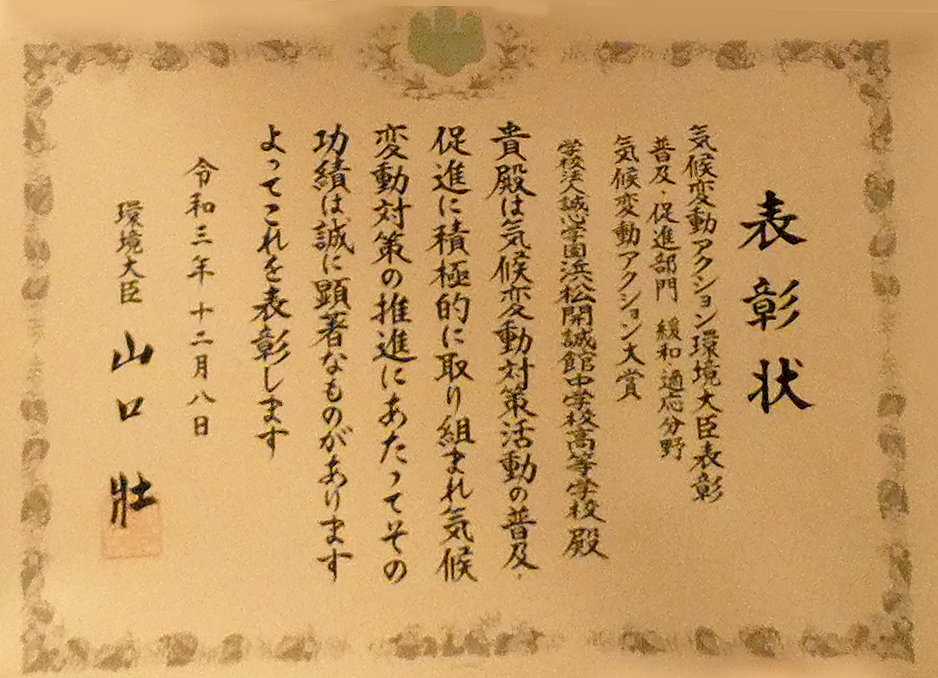 表彰状
気候変動アクション環境大臣表彰
普及・促進部門 緩和・適応分野
気候変動アクション大賞
学校法人誠心学園浜松開誠館中学校高等学校殿
貴殿は気候変動対策活動の普及・
促進に積極的に取り組まれ気候
変動対策の推進にあたってその
功績は誠に顕著なものがあります
よってこれを表彰します
令和三年十二月八日
環境大臣 山口壯